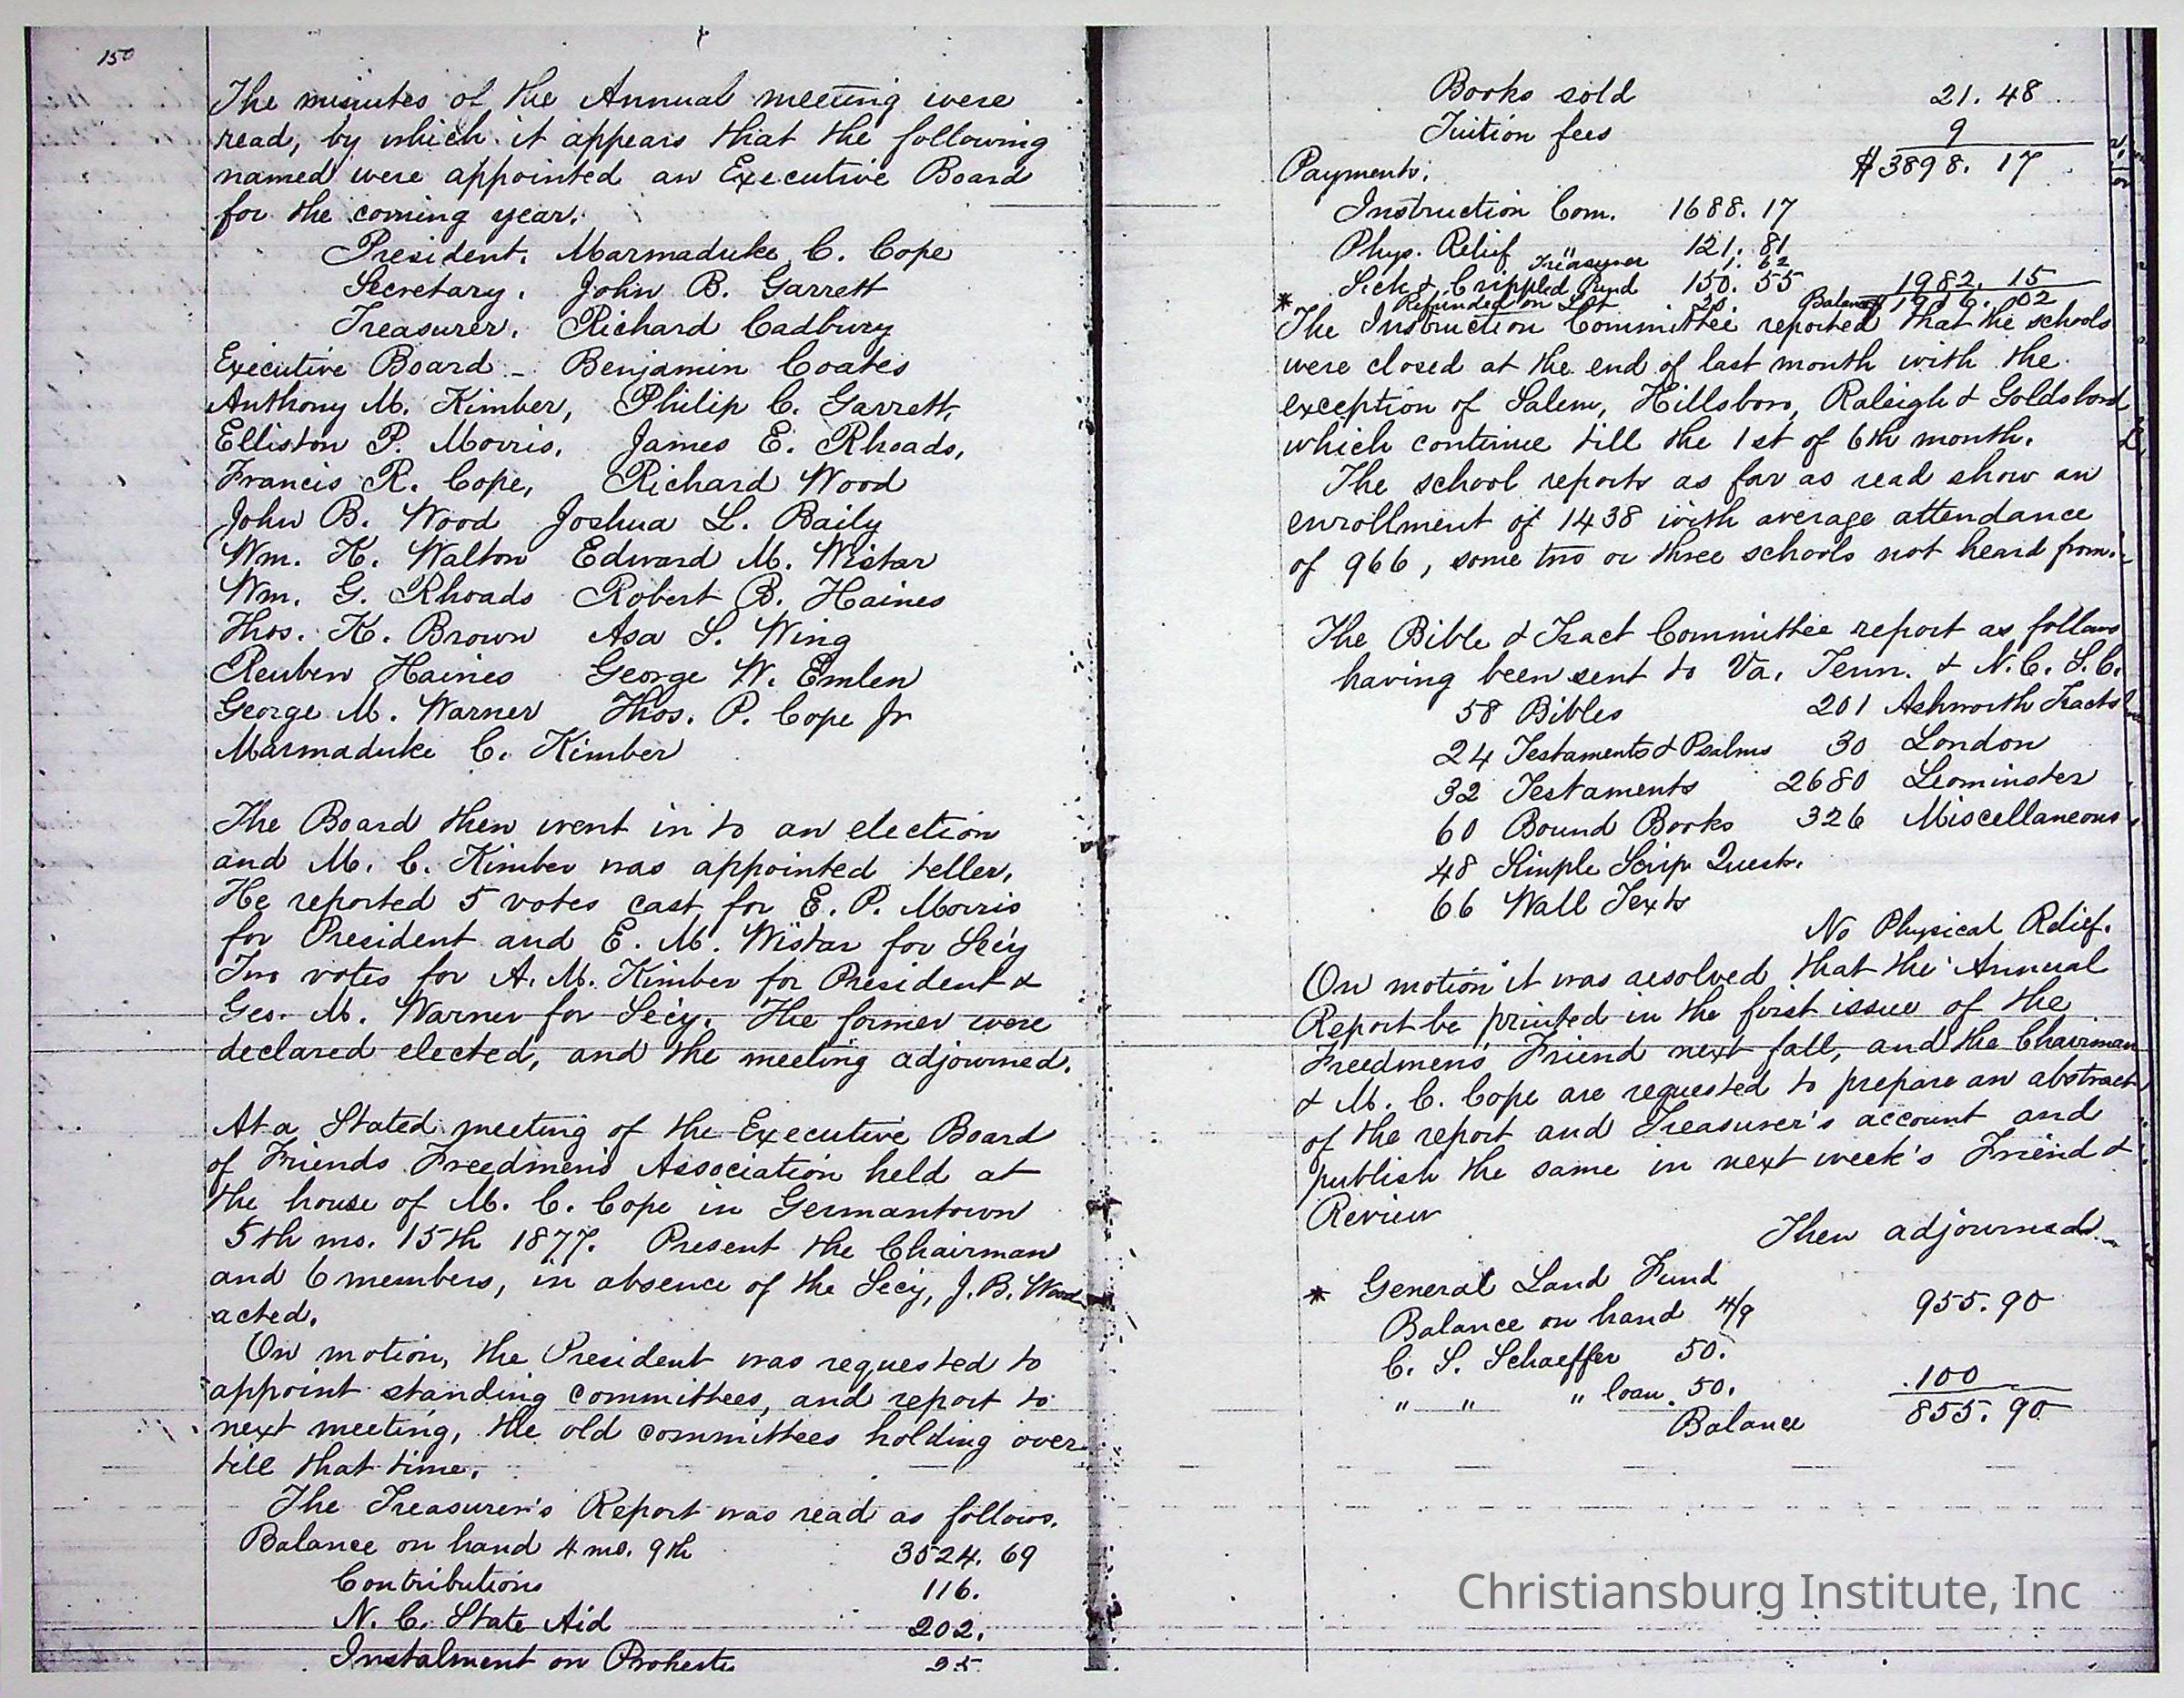 150
The minutes of the Annual meeting were
read, by which it appears that the following
named were appointed an Executive Board
for the coming year.
President. Marmaduke C. Cope
Secretary. John B. Garrett
Treasurer. Richard Cadbury
Executive Board - Benjamin Coates
Anthony M. Kimber, Philip C. Garrett,
Elliston P. Morris, James E. Rhoads,
Francis R. Cope, Richard Wood
John B. Wood Joshua L. Baily
Wm. K. Walton Edward M. Wistar
Wm. G. Rhoads Robert B. Haines
Thos. K. Brown Asa S. Wing
Reuben Haines George W. Emlen
George M. Warner Thos. P. Cope Jr
Marmaduke C. Kimber
The Board then went in to an election
and M. C. Kimber was appointed teller.
He reported 5 votes cast for E. P. Morris
for President and E. M. Wistar for Secy
Two votes for A. M. Kimber for President &
Geo. M. Warner for Secy. The former were
declared elected, and the meeting adjourned.
At a Stated meeting of the Executive Board
of Friends Freedmen's Association held at
the house of M. C. Cope in Germantown
5th mo. 15th 1877. Present the Chairman
and 6 members, in absence of the Secy, J. B. Wood
acted.
On motion, the President was requested to
appoint standing committees, and report to
next meeting, the old committees holding over
till that time.
The Treasurer's Report was read as follows.
Balance on hand 4 mo. 9th 3524. 69
Contributions 116.
N. C. State Aid 202.
Instalment on 25
Books sold 21. 48
Tuition fees 9
Payments. $3898. 17
Instruction Com. 1688. 17
Phys. Relief " 121. 81
Treasurer 1. 62
Sick & Crippled Fund 150. 55 1982. 15
* Refunded on Lot 20. Balance 1916. 02
The Instruction Committee reported that the schools
were closed at the end of last month with the
exception of Salem, Hillsboro, Raleigh & Goldsboro
which continue till the 1st of 6th month.
The school reports as far as read show an
enrollment of 1438 with average attendance
of 966, some two or three schools not heard from.
The Bible & Tract Committee report as follows
having been sent to Va. Tenn. & N.C. S.C.
58 Bibles 201 Ashworth Tracts
24 Testaments & Psalms 30 London
32 Testaments 2680 Leominster
60 Bound Books 326 Miscellaneous
48 Simple Scrip Quest.
66 Wall Texts
No Physical Relief.
On motion it was resolved that the Annual
Report be printed in the first issue of the
Freedmens Friend next fall, and the Chairman
& M. C. Cope are requested to prepare an abstract
of the report and Treasurer's account and
publish the same in next week's Friend &
Review
Then adjourned.
* General Land Fund
Balance on hand 4/9 955. 90
C. S. Schaeffer 50.
" " " loan 50. 100
Balance 855. 90
Christiansburg Institute, Inc